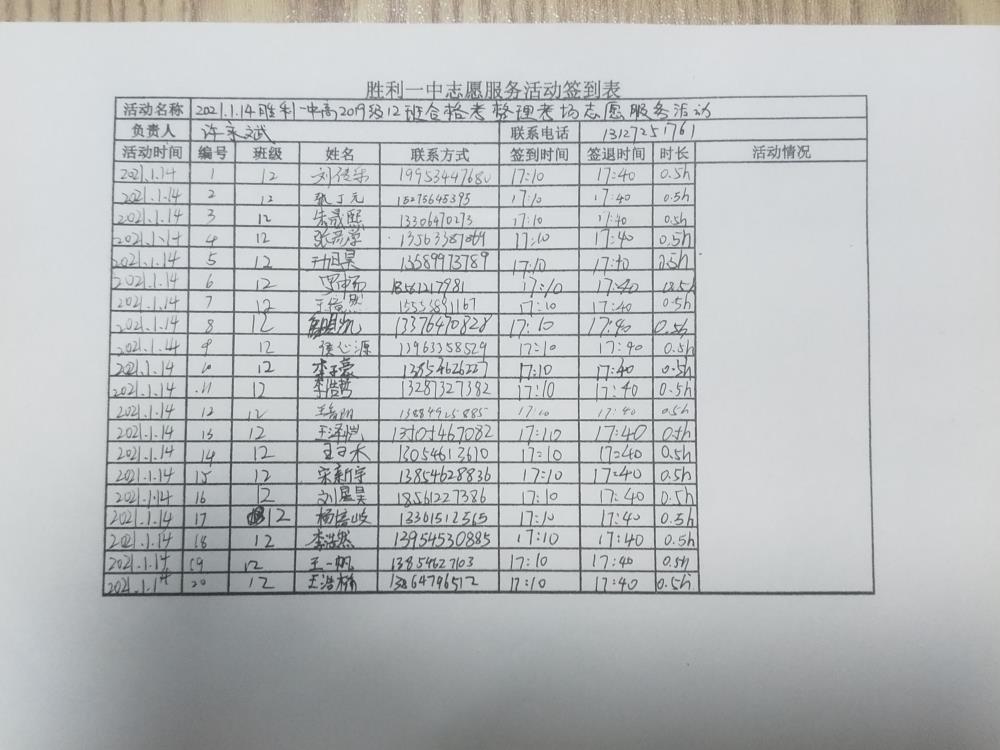 胜利一中志愿服务活动签到表
活动名称 2021.1.14胜利一中高2019级12班合格考整理考场志愿服务活动
负责人 许家斌 联系电话 13127251761
活动时间 编号 班级 姓名 联系方式 签到时间 签退时间 时长 活动情况
2021.1.14 1 12 19953447680 17:10 17:40 0.5h
2021.1.14 2 12 张丁元 15275645395 17:10 17:40 0.5h
2021.1.14 3 12 朱晟熙 13306470273 17:10 17:40 0.5h
2021.1.14 4 12 17:10 17:40 0.5h
2021.1.14 5 12 13589973789 17:10 17:40 0.5h
2021.1.14 6 12 17:10 17:40 0.5h
2021.1.14 7 12 17:10 17:40 0.5h
2021.1.14 8 12 13376470828 17:10 17:40 0.5h
2021.1.14 9 12 侯心源 13963358529 17:10 17:40 0.5h
2021.1.14 10 12 李子豪 17:10 17:40 0.5h
2021.1.14 11 12 李浩哲 13287327382 17:10 17:40 0.5h
2021.1.14 12 12 13884925885 17:10 17:40 0.5h
2021.1.14 13 12 王泽恺 13505467082 17:10 17:40 0.5h
2021.1.14 14 12 13054613610 17:10 17:40 0.5h
2021.1.14 15 12 宋新宇 13854628836 17:10 17:40 0.5h
2021.1.14 16 12 刘星昊 18561227386 17:10 17:40 0.5h
2021.1.14 17 12 杨培峻 13361512565 17:10 17:40 0.5h
2021.1.14 18 12 李浩然 13954530885 17:10 17:40 0.5h
2021.1.14 19 12 王一帆 13854627103 17:10 17:40 0.5h
2021.1.14 20 12 王浩楠 13864746512 17:10 17:40 0.5h